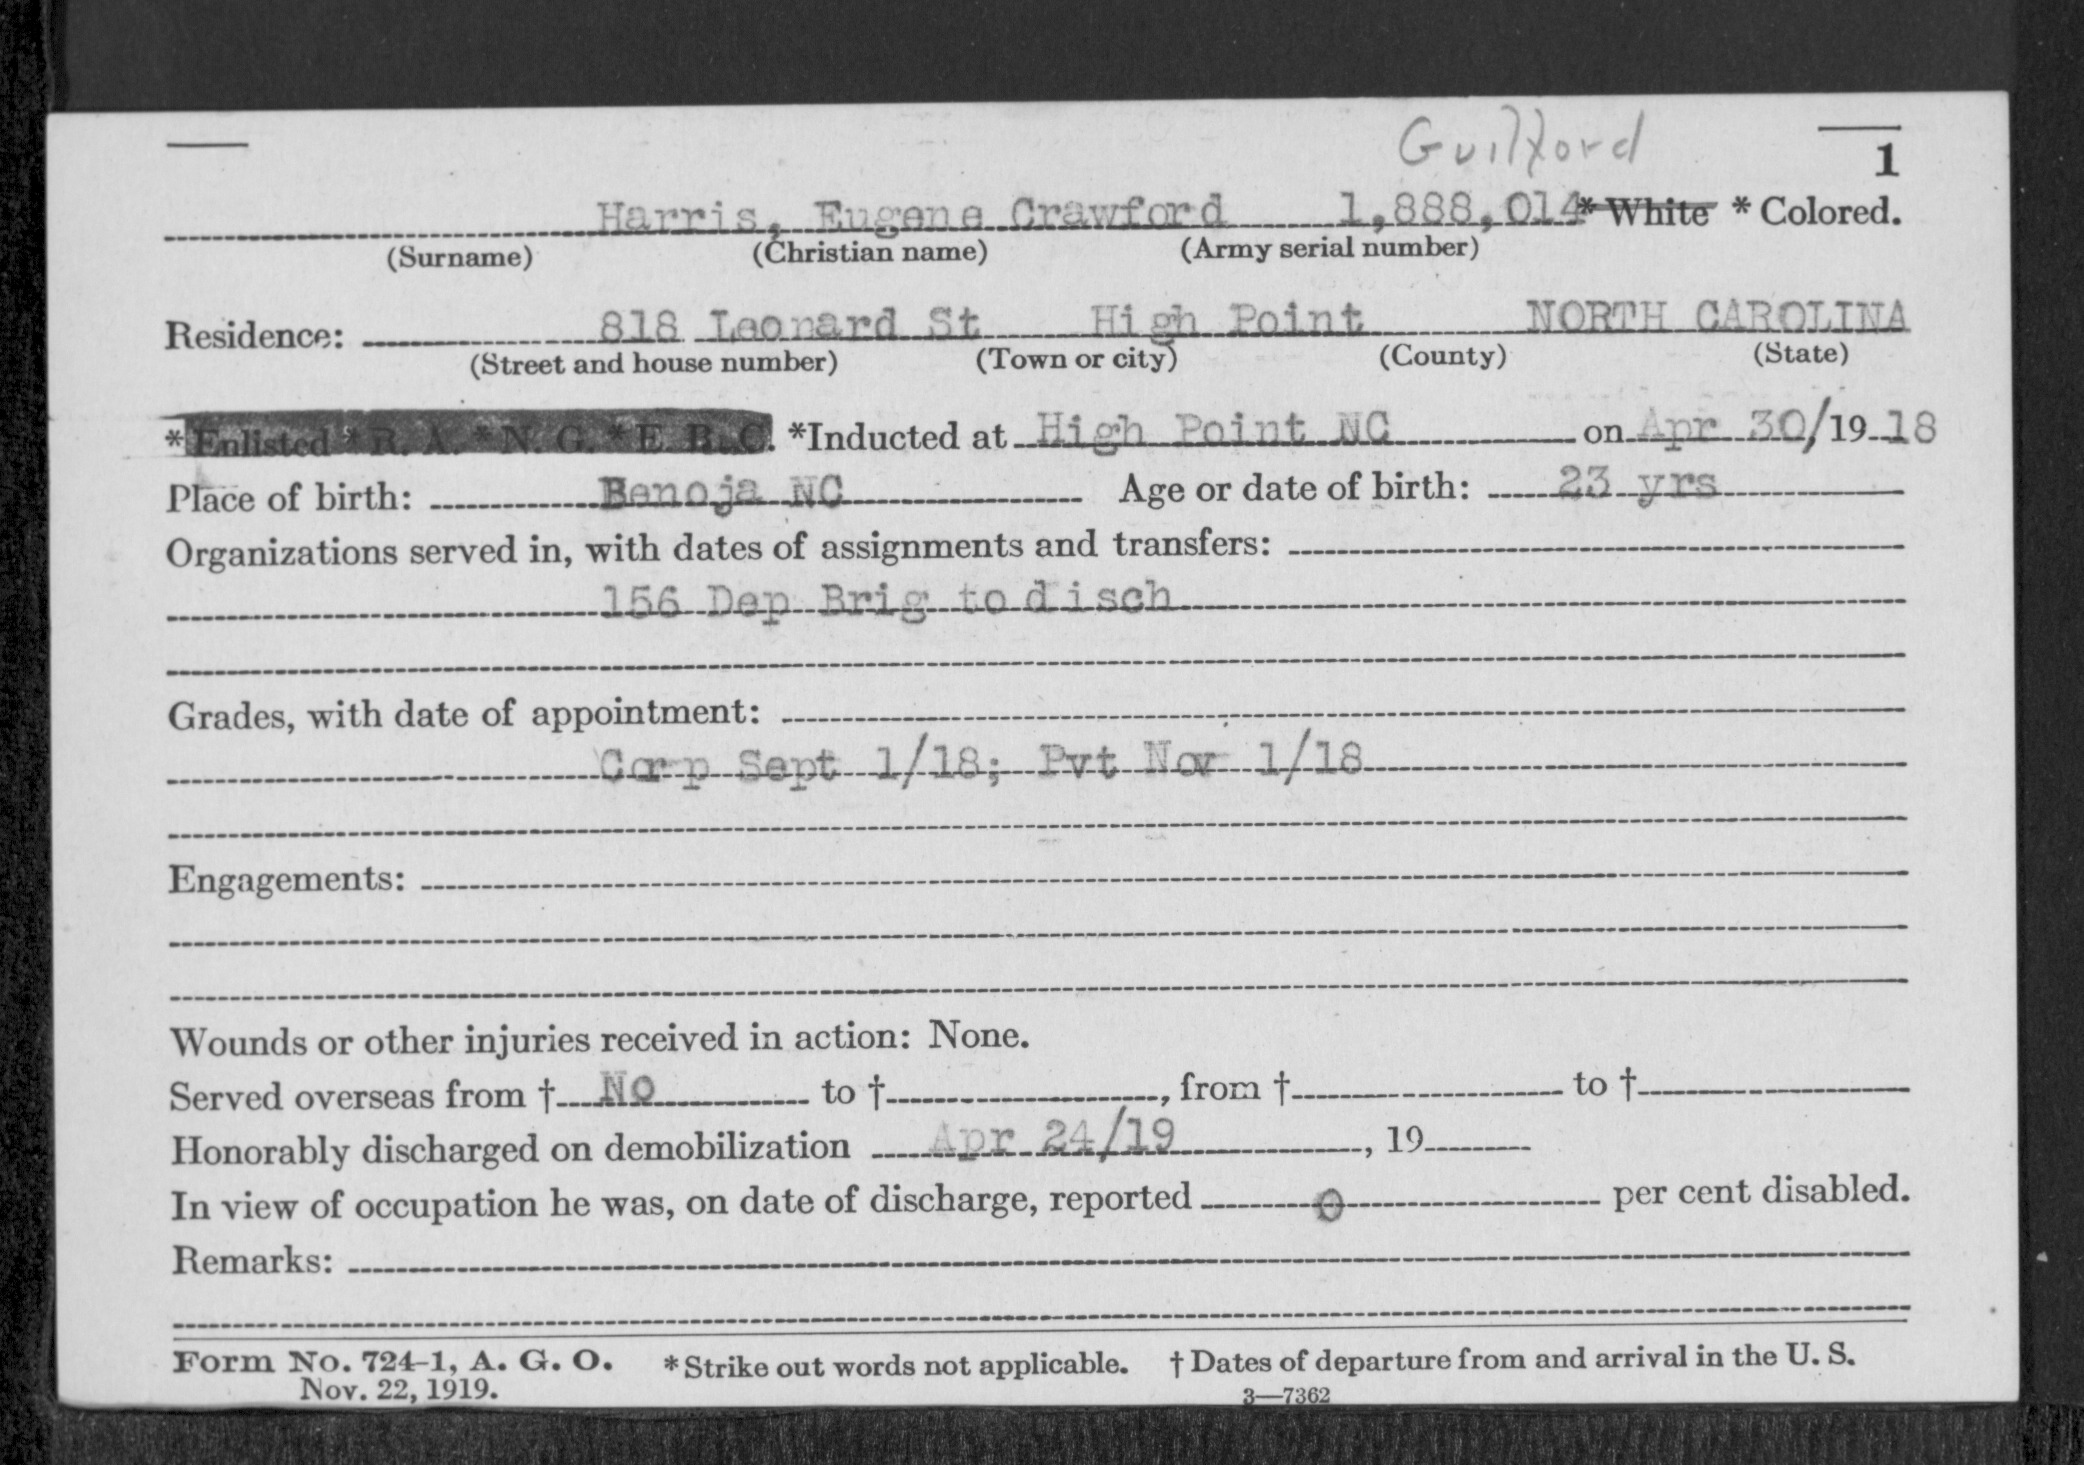 Guilford
1
Harris, Eugene Crawford 1,888,014 * White * Colored.
(Surname) (Christian name) (Army serial number)
Residence: 818 Leonard St High Point NORTH CAROLINA
(Street and house number) (Town or city) (County) (State)
* Enlisted * R. A. * N. G. * E. R. C. *Inducted at High Point NC on Apr 30/19 18
Place of birth: Benoja NC Age or date of birth: 23 yrs
Organizations served in, with dates of assignments and transfers:
156 Dep Brig to disch
Grades, with date of appointment:
Corp Sept 1/18; Pvt Nov 1/18
Engagements:
Wounds or other injuries received in action: None.
Served overseas from † No to †, from † to †
Honorably discharged on demobilization Apr 24/19, 19
In view of occupation he was, on date of discharge, reported 0 per cent disabled.
Remarks:
Form No. 724-1, A. G. O. * Strike out words not applicable. † Dates of departure from and arrival in the U. S.
Nov. 22, 1919. 3—7362